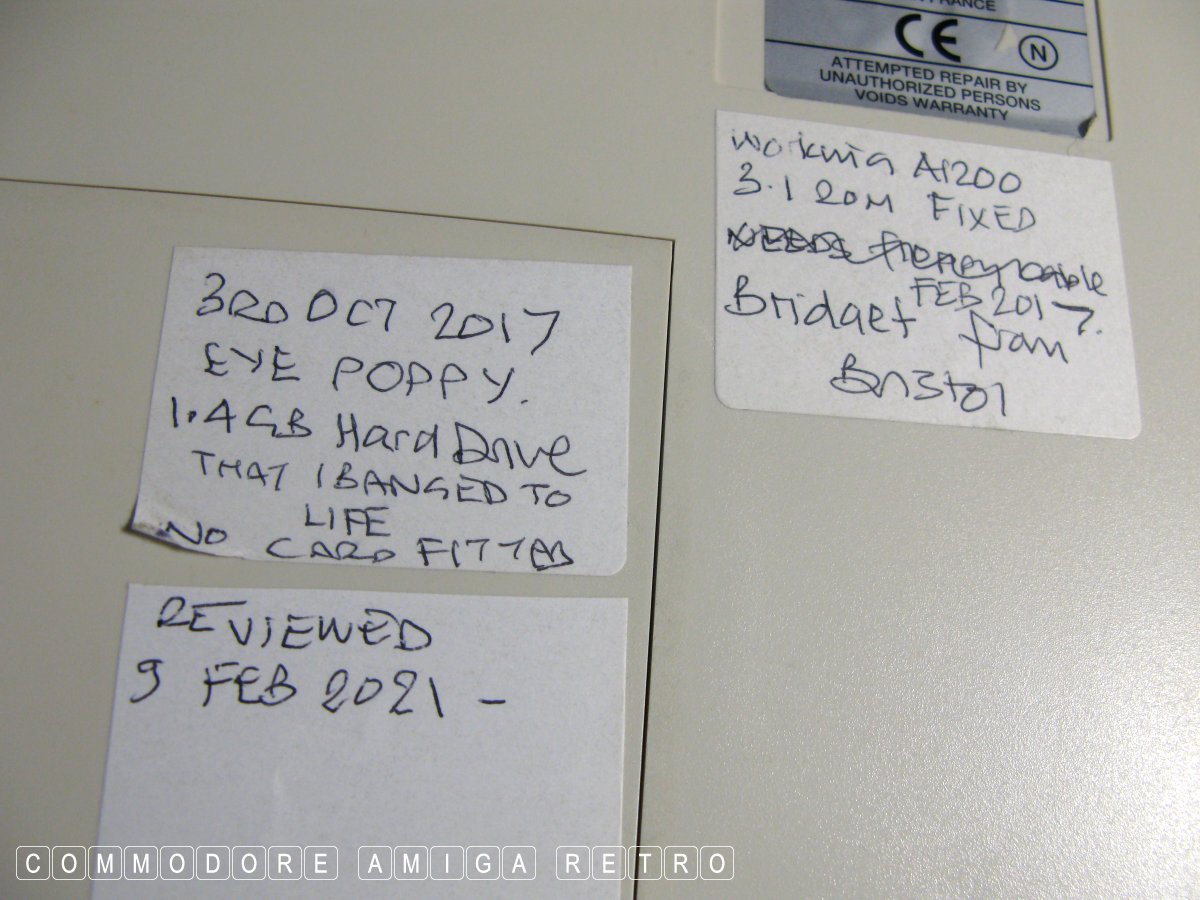 FRANCE
CE N
ATTEMPTED REPAIR BY
UNAUTHORIZED PERSONS
VOIDS WARRANTY
Working A1200
3.1 ROM FIXED
NEEDS floppy cable
FEB 2017.
Bridget from
Bristol
3RD OCT 2017
EYE POPPY.
1.4GB Hard Drive
THAT I BANGED TO
LIFE
NO CARD FITTED
REVIEWED
9 FEB 2021 -
COMMODORE AMIGA RETRO